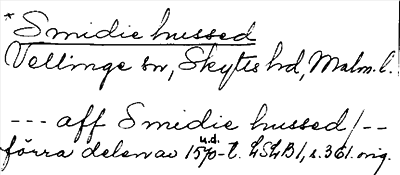 *Smidie hussed
Vellinge sn, Skytts hd, Malm. l.
--- aff Smidie hussed/--
förra delen av 1570-t. u.d. LSLB1, s. 361. orig.